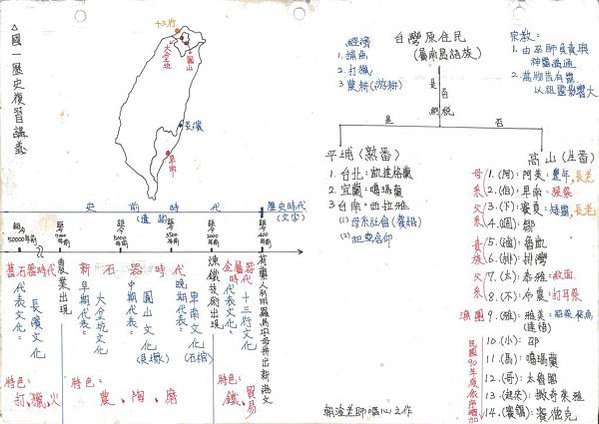 △國一歷史復習講義
十三行
大坌坑
圓山
長濱
卑南
史前時代
(遺蹟)
歷史時代
(文字)
距今50000年前
距今7000年前
距今5000年前
距今2000年前
距今400年前
舊石器時代
代表文化:
長濱文化
農業出現
新石器時代
早期代表:
大坌坑文化
中期代表:
圓山文化
(貝塚)
晚期代表:
卑南文化
(石棺)
煉鐵技術出現
金屬器時代
代表文化:
十三行文化
荷蘭人利用羅馬字母拼出新港文
特色:
打、獵、火
特色:
農、陶、磨
特色:
鐵、貿易
經濟
1. 捕魚
2. 打獵
3. 農耕(游耕)
台灣原住民
(屬南島語族)
是否納稅
宗教:
1. 由巫師負責與神靈溝通
2. 萬物皆有靈
以祖靈影響大
是
否
平埔(熟番)
1. 台北: 凱達格蘭
2. 宜蘭: 噶瑪蘭
3. 台南: 西拉雅
(1) 母系社會(賽跑)
(2) 祀壺信仰
高山(生番)
母系
1. (阿): 阿美: 豐年,長老
2. (伯): 卑南: 猴祭
父系
3. (下): 賽夏: 矮靈,長老
4. : 鄒
貴族
5. : 魯凱
6. (排): 排灣
父系
7. (太): 泰雅: 紋面
8. (不): 布農: 打耳祭
漁團
9. (雅): 雅美: 飛魚
(達悟)
民國90年後依序增加
10. (小): 邵
11. (馬): 噶瑪蘭
12. (哥): 太魯閣
13. : 撒奇萊雅
14. : 賽德克